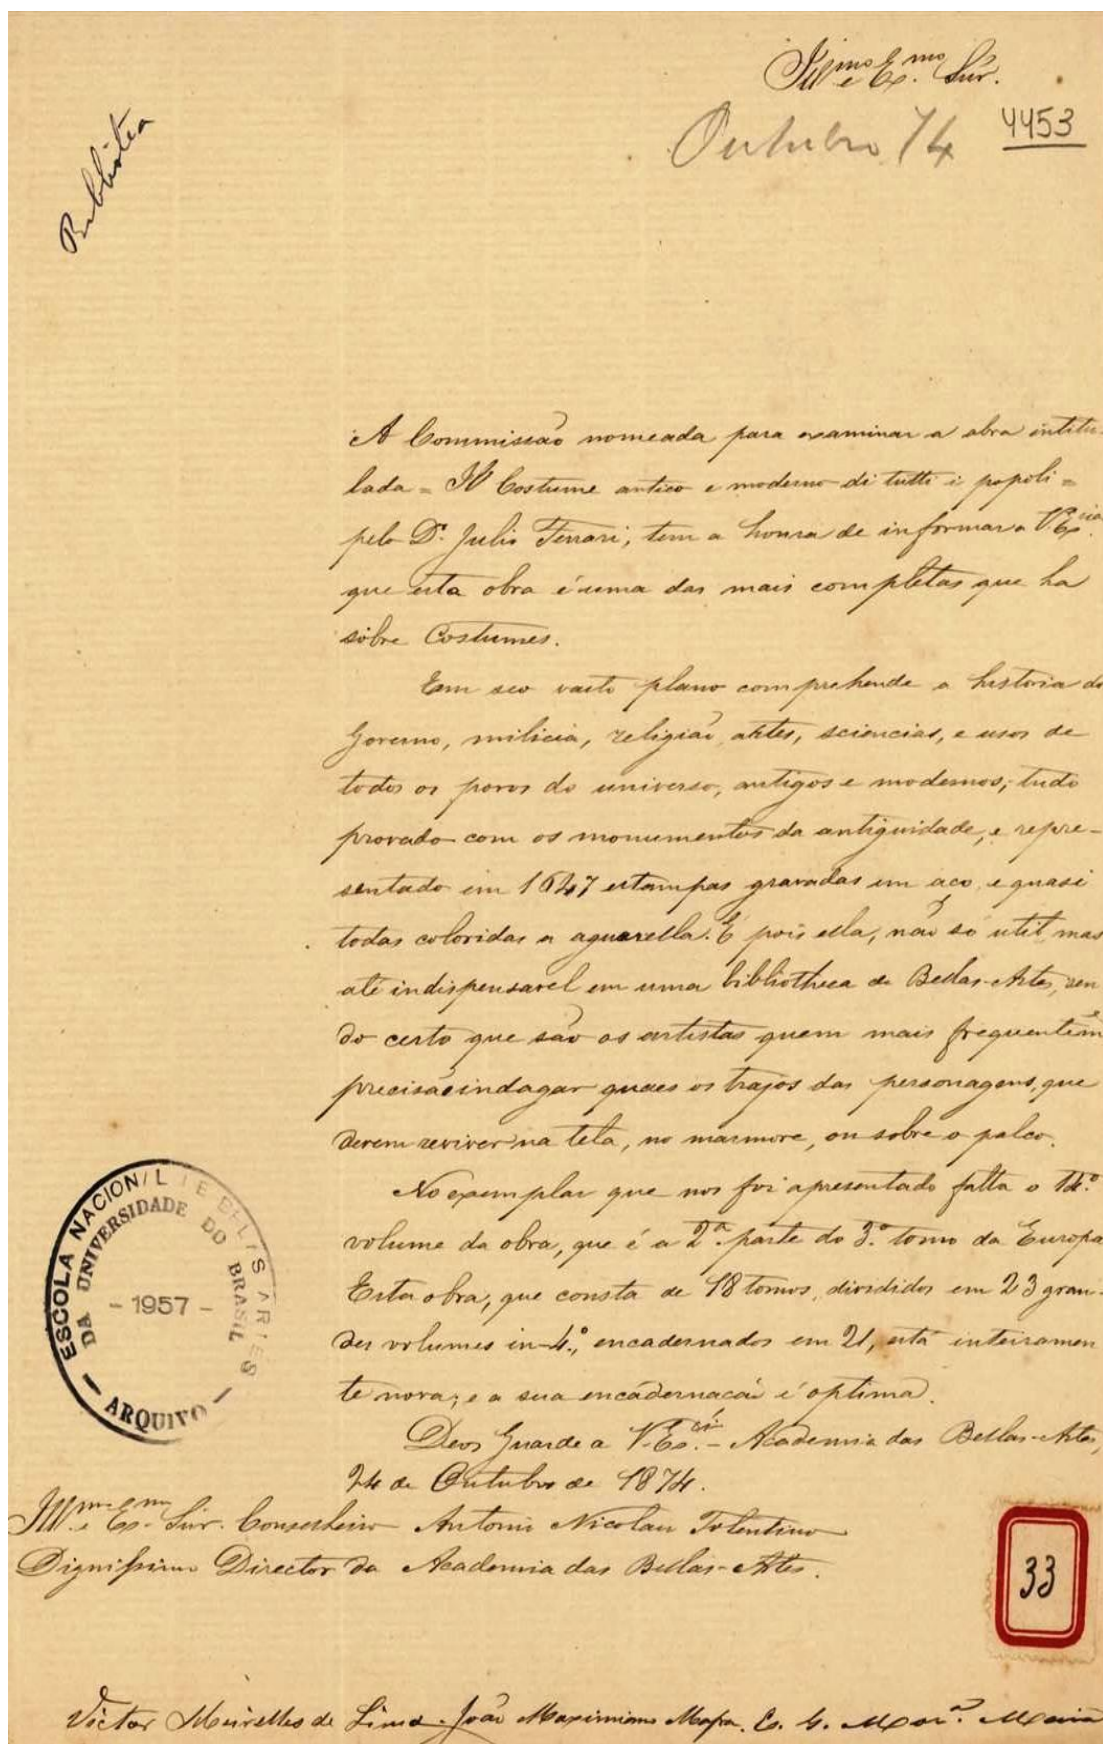 Ill.mo e Ex.mo Snr.
Outubro 74
4453
Bibliotca
A Commissão nomeada para examinar a obra intitu-
lada = Il Costume antico e moderno di tutti i popoli =
pelo Dr. Julio Ferrari, tem a honra de informar a V. Ex.cia
que esta obra é uma das mais completas que ha
sôbre Costumes.
Em seo vasto plano comprehende a historia do
Governo, milicia, religião, artes, sciencias, e usos de
todos os povos do universo, antigos e modernos; tudo
provado com os monumentos da antiguidade, e repre-
sentado em estampas gravadas em aço, e quasi
todas coloridas a aguarella. É pois ella, não só util mas
até indispensavel em uma bibliotheca de Bellas-Artes, sen
do certo que são os artistas quem mais frequentem
precisão indagar quaes os trajos das personagens, que
devem reviver na tela, no marmore, ou sobre o palco.
No exemplar que nos foi apresentado falta o 14.º
volume da obra, que é a 2.ª parte do 3.º tomo da Europa
Esta obra, que consta de 18 tomos, divididos em 23 gran-
des volumes in-4.º, encadernados em 21, está inteiramen
te nova; e a sua encadernação é optima.
Deos Guarde a V. Ex.cia - Academia das Bellas-Artes,
24 de Outubro de 1874.
Ill.mo e Ex.mo Snr. Conselheiro Antonio Nicolau Tolentino
Dignissimo Director da Academia das Bellas-Artes.
ESCOLA NACIONAL DE BELAS ARTES
DA UNIVERSIDADE DO BRASIL
- 1957 -
ARQUIVO
33
Victor Meirelles de Lima João Maximiano Mafra.